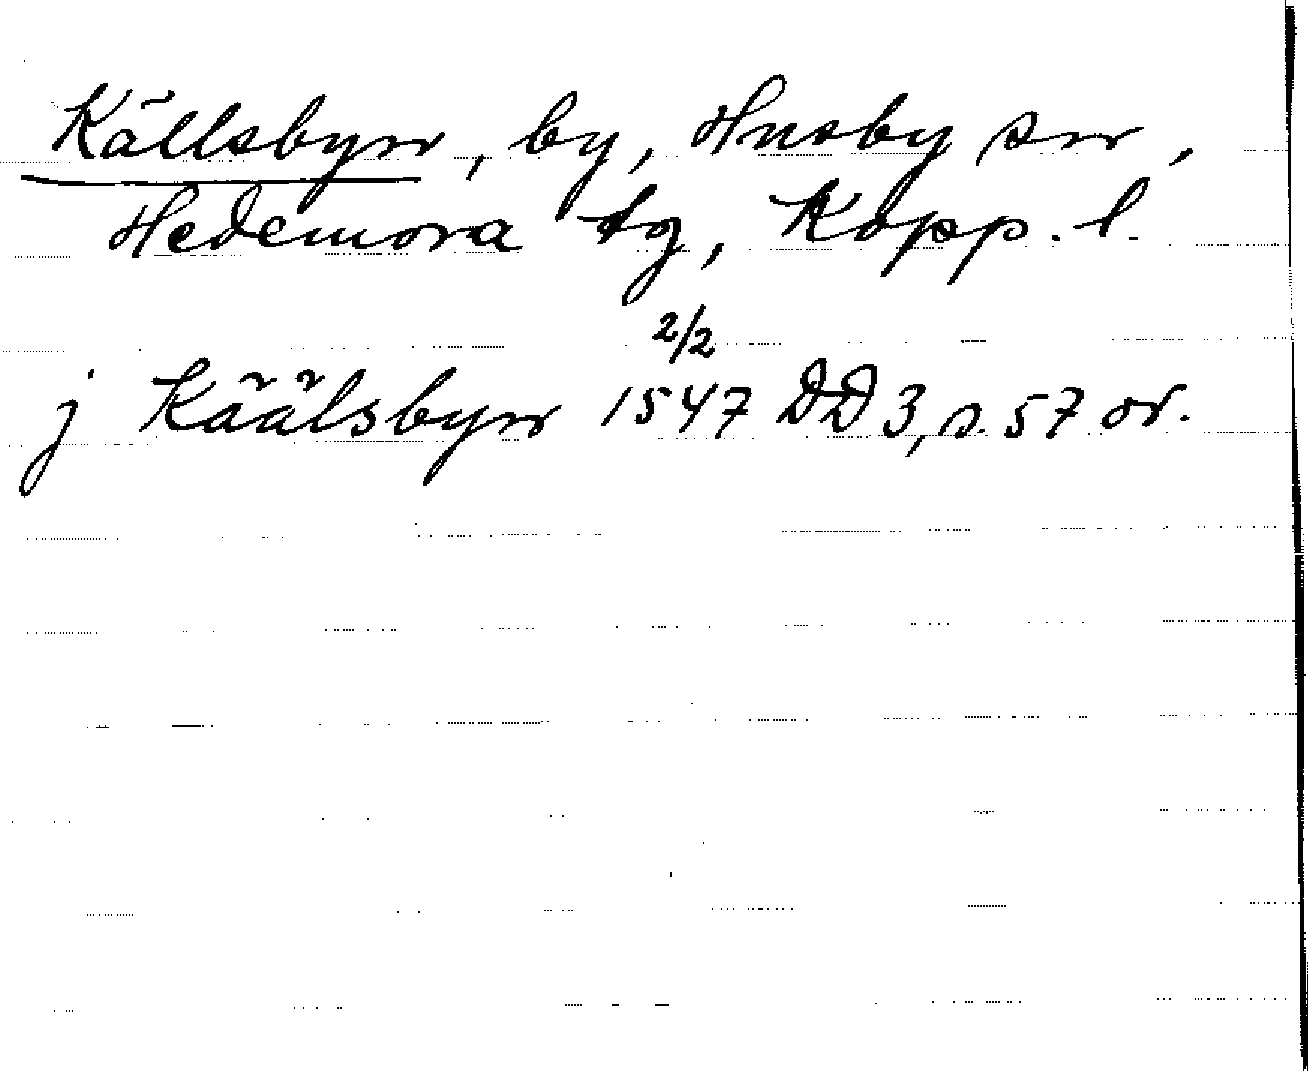 Källsbyn, by, Husby sn,
Hedemora tg, Kopp. l.
2/2
j Käälsbyn 1547 DD 3, s. 57 or.